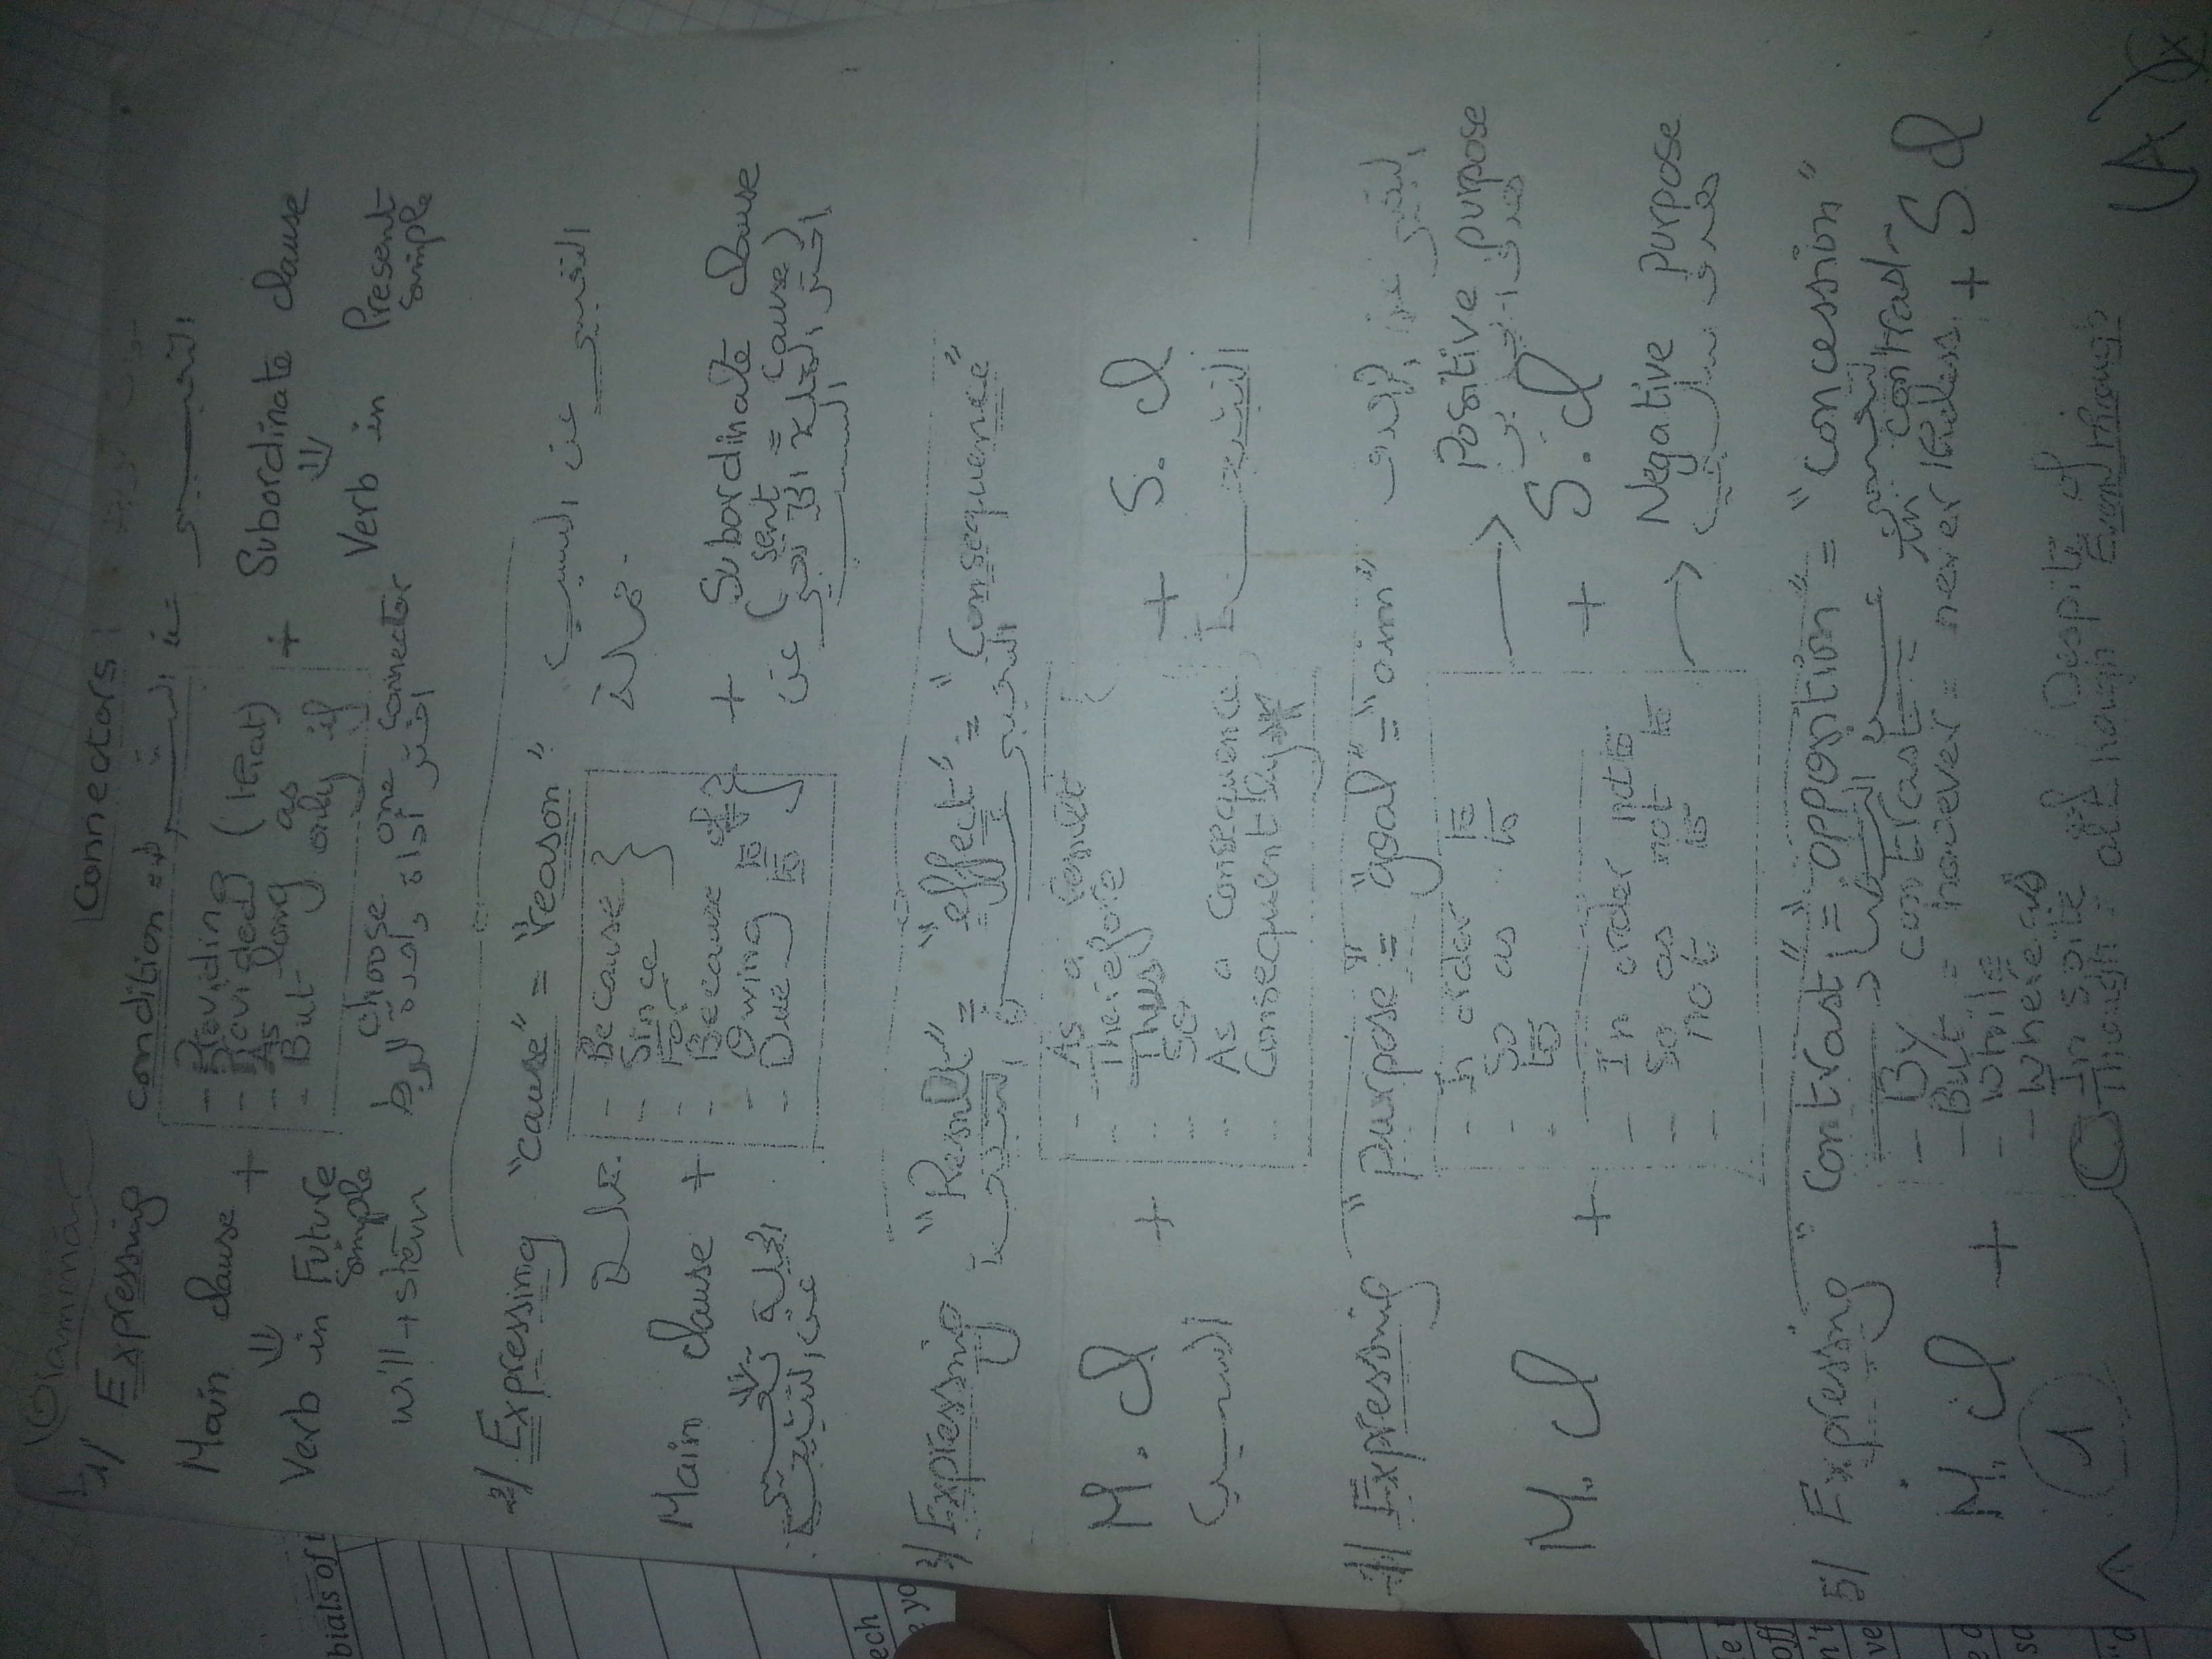 Grammar
Connectors
1/ Expressing condition = التعبير عن الشرط
Main clause + - Providing
- Provided (that)
- As long as
- But only if
+ Subordinate clause
⇓
Verb in Future simple
will + stem
⇓
Verb in Present simple
choose one connector
اختر أداة واحدة للربط
2/ Expressing "cause" = "reason" التعبير عن السبب
جملة
- Because
- Since
- For
- Because of
- Owing to
- Due to
جملة
Main clause +
+ Subordinate clause
(sent = cause)
الجملة تعبر
عن النتيجة
اختر الجملة التي تعبر عن
السبب
3/ Expressing "Result" = "effect" = "Consequence"
التعبير عن النتيجة
M. cl +
- As a result
- Therefore
- Thus
- So
- As a consequence
- Consequently *
+ S. cl
السبب
النتيجة
4/ Expressing "purpose" = "goal" = "aim" التعبير عن الهدف
- In order to
- So as to
- to
→ Positive purpose
هدف إيجابي
M. cl +
+ S. cl
- In order not to
- So as not to
- not to
→ Negative purpose
هدف سلبي
5/ Expressing "contrast" = "opposition" = "concession"
التعبير عن التضاد
- By contrast = in contrast
M. cl +
- But = however = never theless
+ S cl
- While
- Whereas
- In spite of / Despite of
Though = although Even through
1
(A)
bials of t
ech
e yo
off
n't
ve